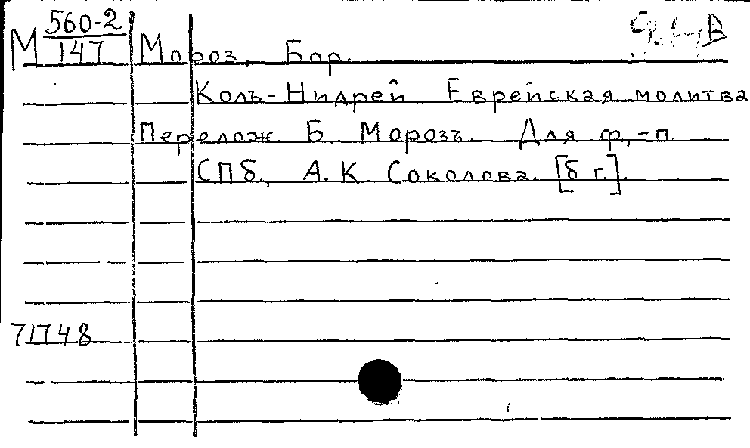 М 560-2/147 Мороз, Бор.
Коль-Нидрей Еврейская молитва
Перелож Б. Морозъ. Для ф.-п.
СПб., А. К. Соколова. [б г.].
71748